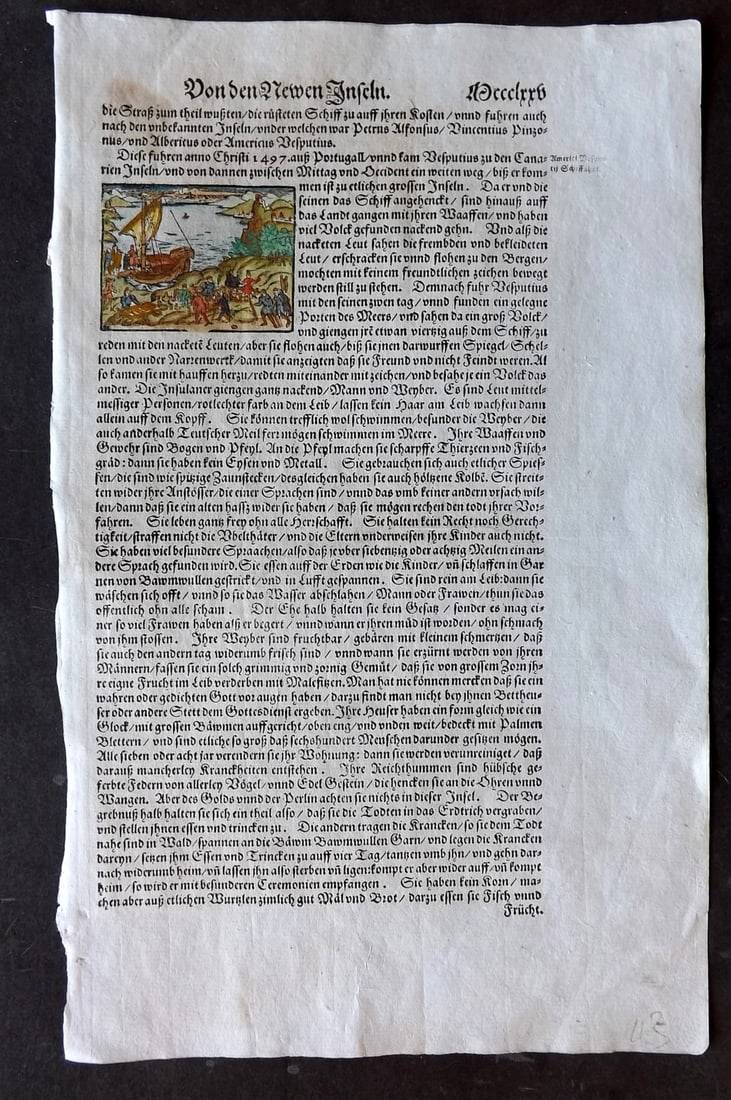 Von den Newen Inseln. Mcccclxxv
die Straß zum theil wußten/die rüsteten Schiff zu auff jhren Kosten/vnnd fuhren auch
nach den vnbekannten Inseln/vnder welchen war Petrus Alfonsus/Vincentius Pinzo-
nus/vnd Albericus oder Americus Vesputius.
Diese fuhren anno Christi 1497. auß Portugall/vnnd kam Vesputius zu den Cana-
rien Inseln/vnd von dannen zwischen Mittag vnd Occident ein weiten weg/biß er kom-
Americi
Schiffahrt.
men ist zu etlichen grossen Inseln. Da er vnd die
seinen das Schiff angehenckt/sind hinauß auff
das Landt gangen mit jhren Waaffen/vnd haben
viel Volck gefunden nackend gehn. Vnd alß die
nacketen Leut sahen die frembden vnd bekleideten
Leut/erschracken sie vnnd flohen zu den Bergen/
mochten mit keinem freundtlichen zeichen bewegt
werden still zu stehen. Demnach fuhr Vesputius
mit den seinen zwen tag/vnnd funden ein gelegne
Porten des Meers/vnd sahen da ein groß Volck/
vnd giengen jrẽ etwan viertzig auß dem Schiff/zu
reden mit den nacketẽ Leuten/aber sie flohen auch/biß sie jnen darwurffen Spiegel/Schel-
len vnd ander Narrenwerck/damit sie anzeigten daß sie Freund vnd nicht Feindt weren. Al
so kamen sie mit hauffen herzu/redten miteinander mit zeichen/vnd besahe je ein Volck das
ander. Die Insulaner giengen gantz nackend/Mann vnd Weyber. Es sind Leut mittel-
messiger Personen/rotlechter farb an dem Leib/lassen kein Haar am Leib wachsen dann
allein auff dem Kopff. Sie können trefflich wol schwimmen/besunder die Weyber/die
auch anderhalb Teutscher Meil ferr mögen schwimmen im Meere. Ihre Waaffen vnd
Gewehr sind Bogen vnd Pfeyl. An die Pfeyl machen sie scharpffe Thierzeen vnd Fisch-
gräd: dann sie haben kein Eysen vnd Metall. Sie gebrauchen sich auch etlicher Spies-
sen/die sind wie spitzige Zaunstecken/desgleichen haben sie auch höltzene Kolbẽ. Sie streit-
ten wider jhre Anstösser/die einer Sprachen sind/vnnd das vmb keiner andern vrsach wil-
len/dann daß sie ein alten hassz wider sie haben/daß sie mögen rechen den todt jhrer Vor-
fahren. Sie leben gantz frey ohn alle Herrschafft. Sie halten kein Recht noch Gerech-
tigkeit/straffen nicht die Vbelthäter/vnd die Eltern vnderweisen jhre Kinder auch nicht.
Sie haben viel besundere Spraachen/also daß je vber siebentzig oder achtzig Meilen ein an-
dere Sprach gefunden wird. Sie essen auff der Erden wie die Kinder/vñ schlaffen in Gar
nen von Bawmwullen gestrickt/vnd in Lufft gespannen. Sie sind rein am Leib: dann sie
wäschen sich offt/vnnd so sie das Wasser abschlahen/Mann oder Frawen/thun sie das
offentlich ohn alle scham. Der Ehe halb halten sie kein Gesatz/sonder es mag ei-
ner so viel Frawen haben alß er begert/vnnd wann er jhren müd ist worden/ohn schmach
von jhm stossen. Ihre Weyber sind fruchtbar/gebären mit kleinem schmertzen/daß
sie auch den andern tag widerumb frisch sind/vnnd wann sie erzürnt werden von jhren
Männern/fassen sie ein solch grimmig vnd zornig Gemüt/daß sie von grossen Zorn jh-
re eigne Frucht im Leib verderben mit Malefitzen. Man hat nie können mercken daß sie ein
wahren oder gedichten Gott vor augen haben/darzu findt man nicht bey jhnen Bettheu-
ser oder andere Stett dem Gottesdienst ergeben. Ihre Heuser haben ein form gleich wie ein
Glock/mit grossen Bäwmen auffgericht/oben eng/vnd vnden weit/bedeckt mit Palmen
Blettern/vnd sind etliche so groß daß sechshundert Menschen darunder gesitzen mögen.
Alle sieben oder acht jar verendern sie jhr Wohnung: dann sie werden verunreiniget/daß
darauß mancherley Kranckheiten entstehen. Ihre Reichthummen sind hübsche ge-
ferbte Federn von allerley Vögel/vnnd Edel Gestein/die hencken sie an die Ohren vnnd
Wangen. Aber des Golds vnnd der Perlin achten sie nichts in dieser Insel. Der Be-
grebnuß halb halten sie sich ein theil also/daß sie die Todten in das Erdtrich vergraben/
vnd stellen jhnen essen vnd trincken zu. Die andern tragen die Krancken/so sie dem Todt
nahe sind in Wald/spannen an die Bäwm Bawmwullen Garn/vnd legen die Krancken
dareyn/setzen jhm Essen vnd Trincken zu auff vier Tag/tantzen vmb jhn/vnd gehn dar-
nach widerumb heim/vñ lassen jhn also sterben vñ ligen: kompt er aber wider auff/vñ kompt
heim/so wird er mit besunderen Ceremonien empfangen. Sie haben kein Korn/ma-
chen aber auß etlichen Wurtzlen zimlich gut Mäl vnd Brot/darzu essen sie Fisch vnnd
Frücht.